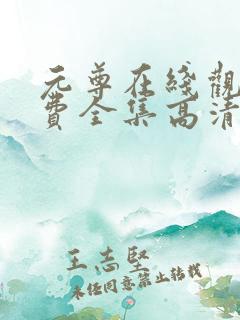 元尊在线觀
費全集高清
王志堅
未经同意禁止转载